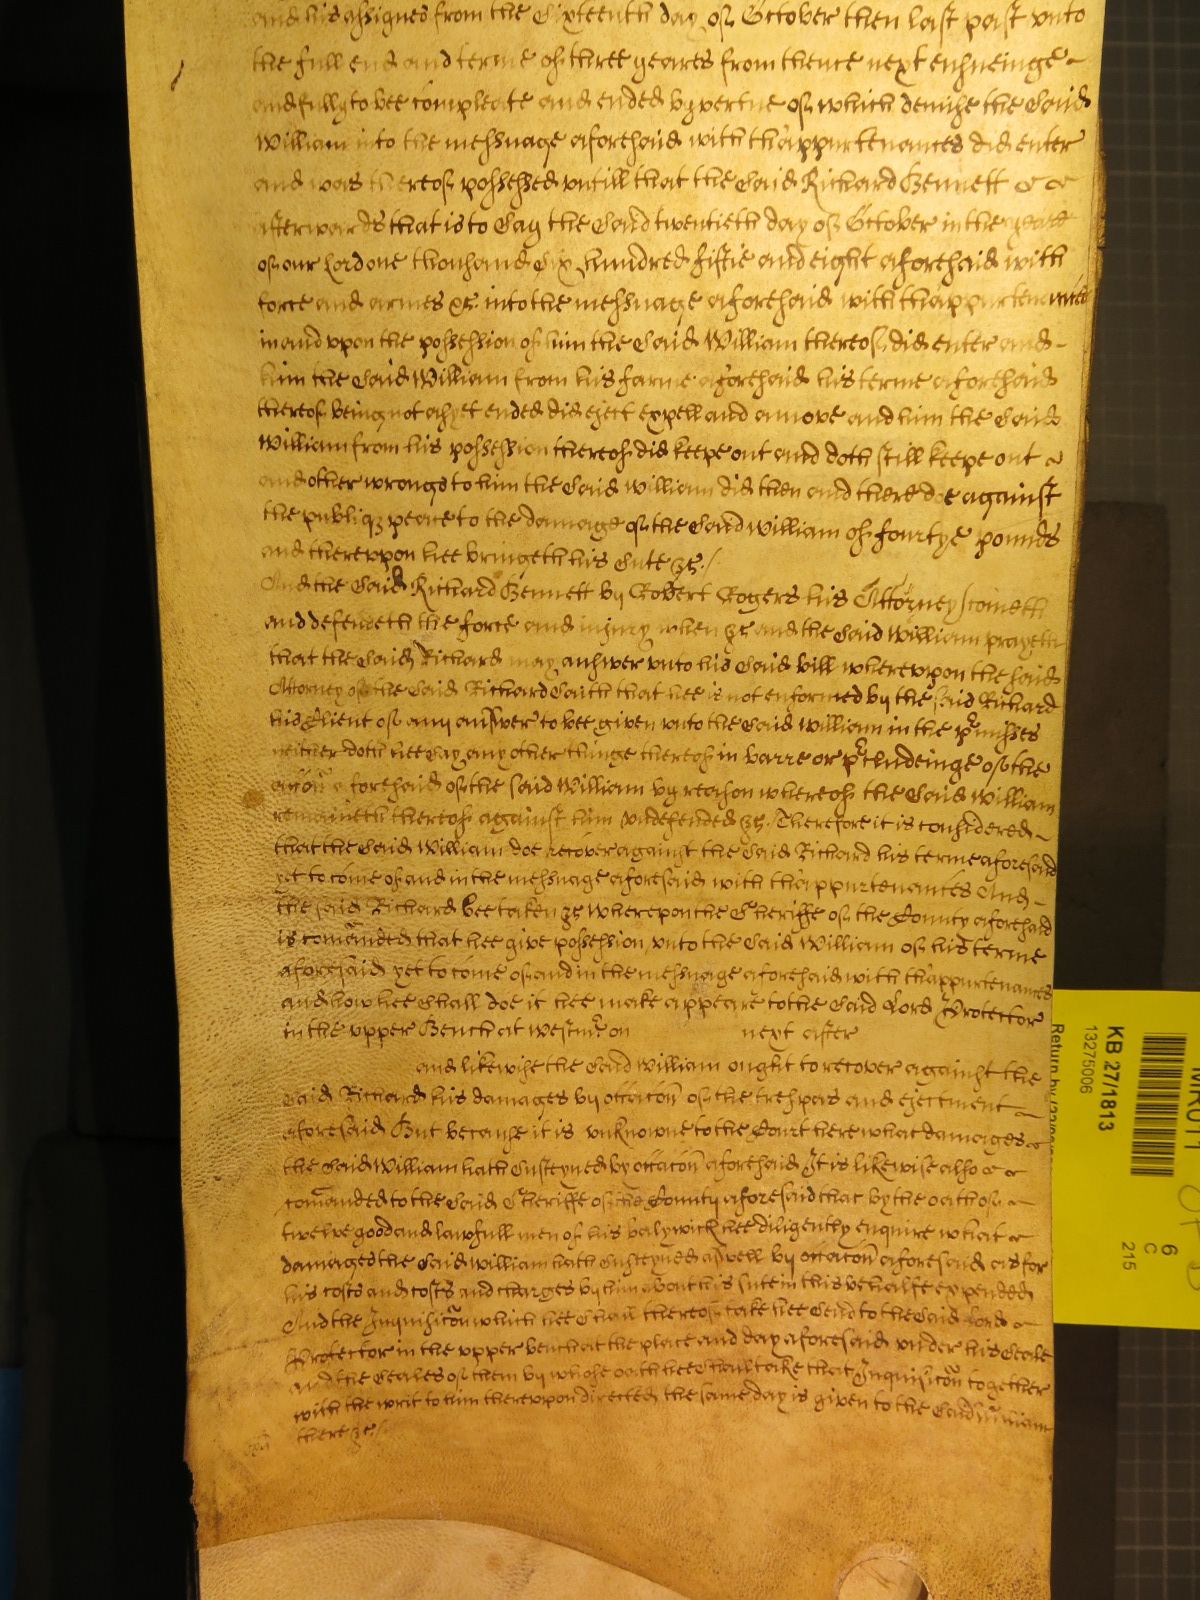 and his assignes from the Sixteenth day of October then last past unto
the full end and terme of three yeares from thence next ensueinge
and fully to bee compleate and ended by vertue of which demise the said
William into the messuage aforesaid with thappurtenances did enter
and was thereof possessed untill that the said Richard Bennett &c
afterwards that is to say the said twentieth day of October in the yeare
of our Lord one thousand Six hundred fiftie and eight aforesaid with
force and armes &c into the messuage aforesaid with thappurtenances
in and upon the possession of him the said William thereof did enter and
him the said William from his farme aforesaid his terme aforesaid
thereof being not as yet ended did eject expell and amove and him the said
William from his possession thereof did keepe out and doth still keepe out
and other wrongs to him the said William did then and there doe against
the publiq peace to the damage of the said William of fourtye pounds
and thereupon hee bringeth his Sute &c
And the said Richard Bennett by Robert Rogers his Attorney cometh
and defendeth the force and injury when &c and the said William prayeth
that the said Richard may answer unto his said bill whereupon the said
Attorney of the said Richard saith that hee is not enformed by the said Richard
his Client of any answer to bee given unto the said William in the pmisses
neither doth hee say any other thinge thereof in barre or pcludeinge of the
accon aforesaid of the said William by reason whereof the said William
remaineth thereof against him undefended &c Therefore it is considered
that the said William doe recover against the said Richard his terme aforesaid
yet to come of and in the messuage aforesaid with thappurtenances And
the said Richard bee taken &c whereupon the Sheriffe of the County aforesaid
is comanded that hee give possession unto the said William of his terme
aforesaid yet to come of and in the messuage aforesaid with thappurtenances
and how hee shall doe it hee make appeare to the said Lord Protector
in the upper Bench at Westmr on next after
and likewise the said William ought to recover against the
said Richard his damages by occacon of the trespas and ejectment
aforesaid But because it is unknowne to the Court here what damages
the said William hath susteyned by occacon aforesaid It is likewise also
comanded to the said Sheriffe of the County aforesaid that by the oath of
twelve good and lawfull men of his balywick hee diligently enquire what
damages the said William hath susteyned aswell by occacon aforesaid as for
his costs and costs and charges by him about his sute in this behalfe expended
And the Inquisicon which hee shall thereof take hee send to the said Lord
Protector in the upper bench at the place and day aforesaid under his Seale
and the Seales of them by whose oath hee shall take that Inquisicon together
with the writ to him thereupon directed the same day is given to the said William
there &c
KB 27/1813
13275006
Return by
6
C
215